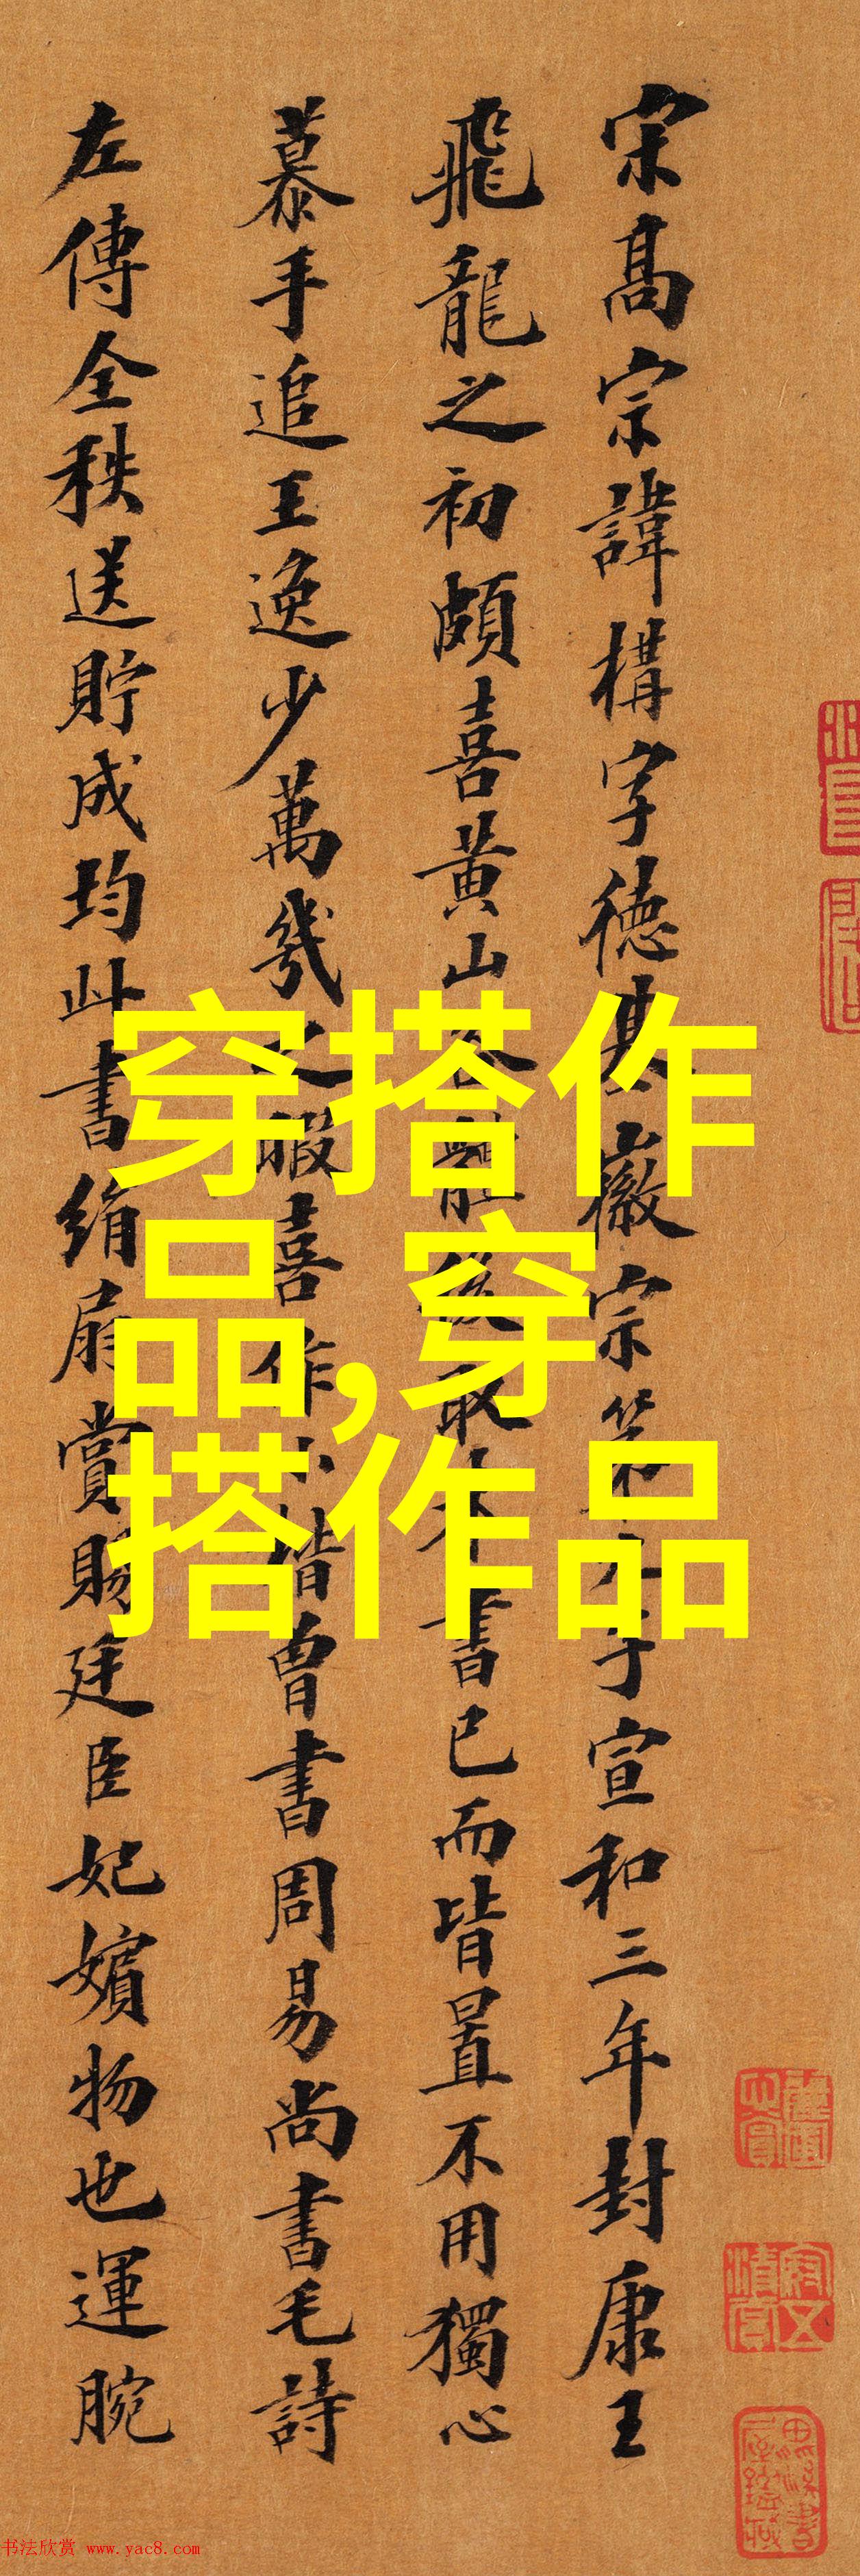 宋高宗諱構字德基徽宗第九子宣和三年封康王
飛龍之初頗喜黃山谷體後取米書已而皆置不用獨心
慕手追王逸少萬幾之暇喜作小楷曾書周易尚書毛詩
左傳全秩送貯成均此書絹扇賞賜廷臣妃嬪物也運腕
穿搭作
品,穿
搭作品
书法欣赏 www.yac8.com